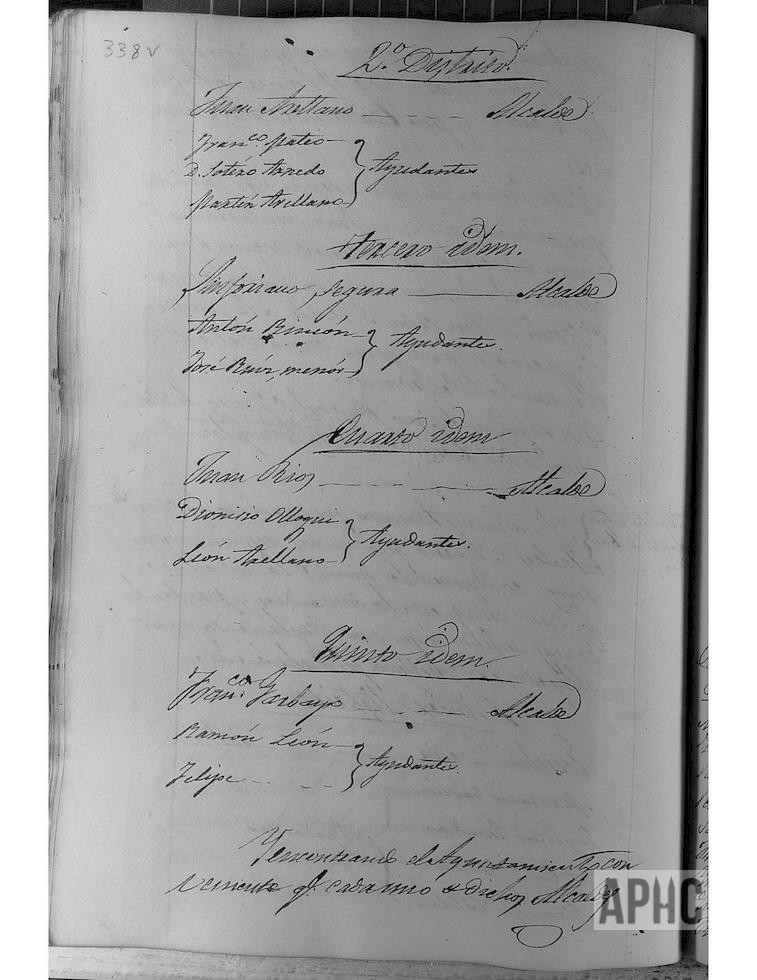 338v
2.º Distrito.
Juan Arellano Alcalde
Franco. Mateo
D. Sotéro Arnedo
Martín Arellano
Ayudantes
Tercero idem.
Sinforiano Segura Alcalde
Antón Rincón
José Ruiz menór
Ayudantes.
Cuarto idem
Juan Rios Alcalde
Dionisio Olloqui
León Arellano
Ayudantes.
Quinto idem.
Franco. Garbayo Alcalde
Ramón León
Felipe
Ayudantes.
el Ayuntamiento con
veniente q. cada uno dichos Alcaldes
APHC